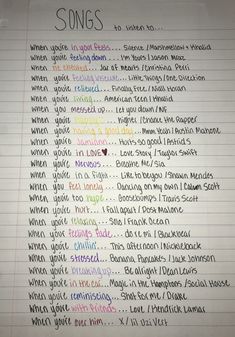 SONGS to listen to...
When you're in your feels... Silence / Marshmellow + Khalid
When you're feeling down... I'm Yours / Jason Mraz
When he cheated... Jar of Hearts / Christina Perri
When you're feeling insecure... Little Things / One Direction
When you're relieved... Finally Free / Niall Horan
When you're living... American Teen / Khalid
When you messed up... Let you down / NF
When you're ... Higher / Chance the Rapper
When you're having a good day... Mmm Yeah / Austin Mahone
When you're Jammin... Hurts so good / Astrids
When you're in LOVE♥... Love Story / Taylor Swift
When you're Nervous... Breathe Me / Sia
When you're in a fight... Like to be you / Shawn Mendes
When you feel lonely... Dancing on my own / Calum Scott
When you too hype... Goosebumps / Travis Scott
When you're hurt... I fall apart / Post Malone
When you're relaxing... Solo / Frank Ocean
When your feelings fade... do re mi / Blackbear
When you're chillin'... This afternoon / Nickelback
When you're stressed... Banana Pancakes / Jack Johnson
When you're breaking up... Be alright / Dean Lewis
When you're in the car... Magic in the Hamptons / Social House
When you're reminiscing... Shot for Me / Drake
When you're with friends... Love / Kendrick Lamar
When you're over him... X / lil Uzi Vert